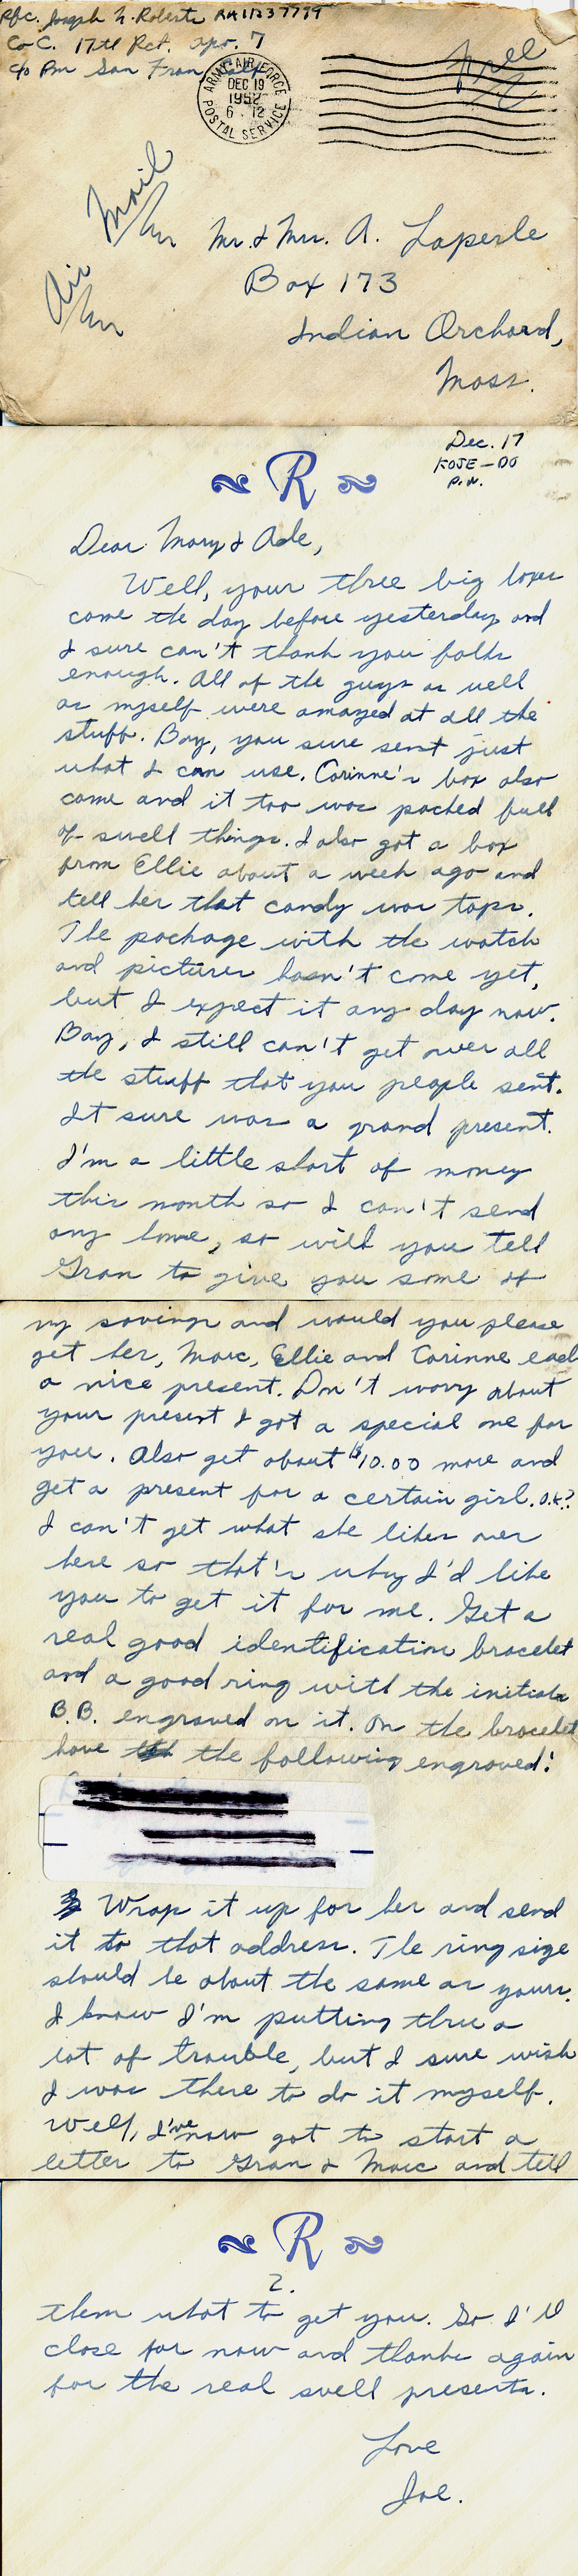 Pfc. Joseph N. Roberts RA11237799
Co C. 17th Rct. Apo. 7
c/o Pm San Fran, Calif.
ARMY-AIR FORCE
DEC 19
1952
6 12
POSTAL SERVICE
Free
Air Mail
Mr. & Mrs. A. Laperle
Box 173
Indian Orchard,
Mass.
Dec. 17
KOJE-DO
P.W.
R
Dear Mary & Ade,
Well, your three big boxes
came the day before yesterday and
I sure can't thank you folks
enough. All of the guys as well
as myself were amazed at all the
stuff. Boy, you sure sent just
what I can use. Corinne's box also
came and it too was packed full
of swell things. I also got a box
from Ellie about a week ago and
tell her that candy was tops.
The package with the watch
and pictures hasn't come yet,
but I expect it any day now.
Boy, I still can't get over all
the stuff that you people sent.
It sure was a grand present.
I'm a little short of money
this month so I can't send
any home, so will you tell
Gram to give you some of
my savings and would you please
get her, Marc, Ellie and Corinne each
a nice present. Don't worry about
your present I got a special one for
you. Also get about $10.00 more and
get a present for a certain girl. O.K.?
I can't get what she likes over
here so that's why I'd like
you to get it for me. Get a
real good identification bracelet
and a good ring with the initials
B.B. engraved on it. On the bracelet
have the following engraved:
Wrap it up for her and send
it to that address. The ring size
should be about the same as yours.
I know I'm putting thru a
lot of trouble, but I sure wish
I was there to do it myself.
Well, I've now got to start a
letter to Gram & Marc and tell
R
2.
them what to get you. So I'll
close for now and thanks again
for the real swell presents.
Love
Joe.